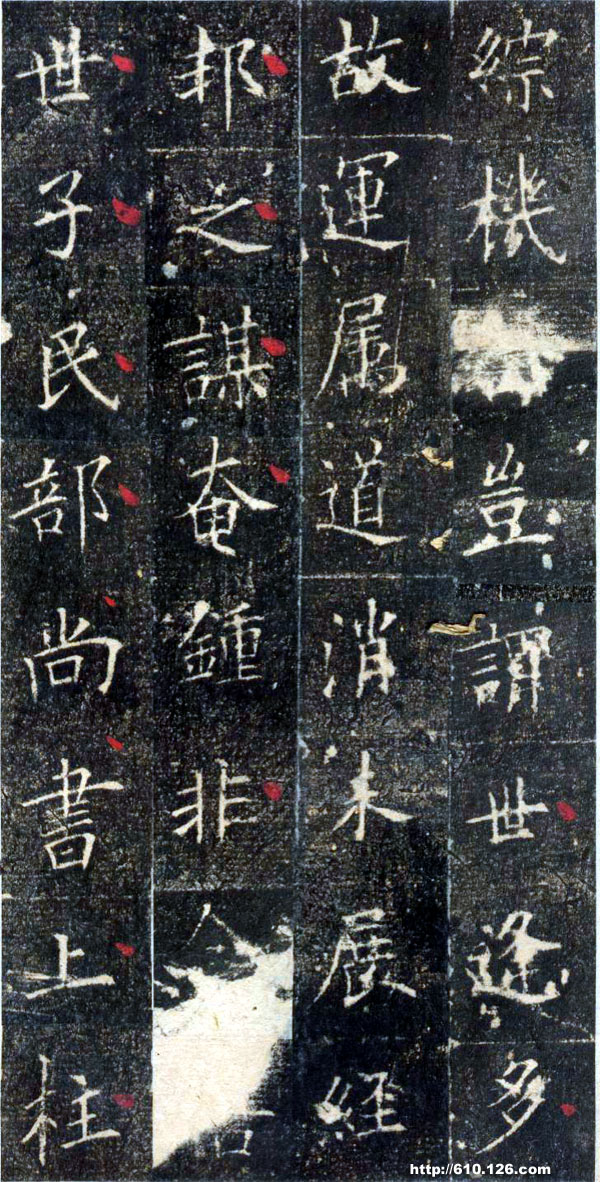 綜機豈謂世逢多
故運属道消未展経
邦之謀奄鍾非
世子民部尚書上柱
http://610.126.com